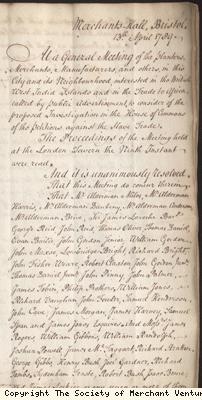 Merchants Hall, Bristol,
13th April 1789.
At a General Meeting of the Planters,
Merchants, Manufacturers, and others, in this
City and its Neighbourhood, interested in the British
West India Islands and in the Trade to Africa,
called by Public Advertisement, to consider of the
proposed Investigation in the House of Commons
of the Petitions against the Slave Trade.
The Proceedings of the Meeting held
at the London Tavern the Ninth Instant
were read.
And it is unanimously resolved,
That this Meeting do concur therein,
That Mr. Alderman Miles, Mr. Alderman
Harris, Mr. Alderman Daubeny, Mr. Alderman Anderson,
Mr. Alderman Brice, Sir James Laroche Bart.
George Reid John Reid, Thomas Thomas Daniel,
Evan Baillie, John Gordon Junior, William Gordon,
John Richard Bright,
John Fisher Weare, Robert Claxton John Gordon Junr.
Thomas Daniel Junr. John Penny, John Palmer,
James Tobin, Philip Protheroe, William Jones,
Richard Vaughan John Souter, Samuel Henderson,
John Cave, James Morgan, James Harvey, Samuel
Span and James Jones Esquires, and Messrs. James
Rogers, William Gibbons, William Randolph,
Joshua Powell, James Mc.Taggart, Richard
George Gibbs, Henry Bush John Gardner, Richard
Lambs, Sydenham Teast, Robert Bush, James
Copyright The Society of Merchant Ventur